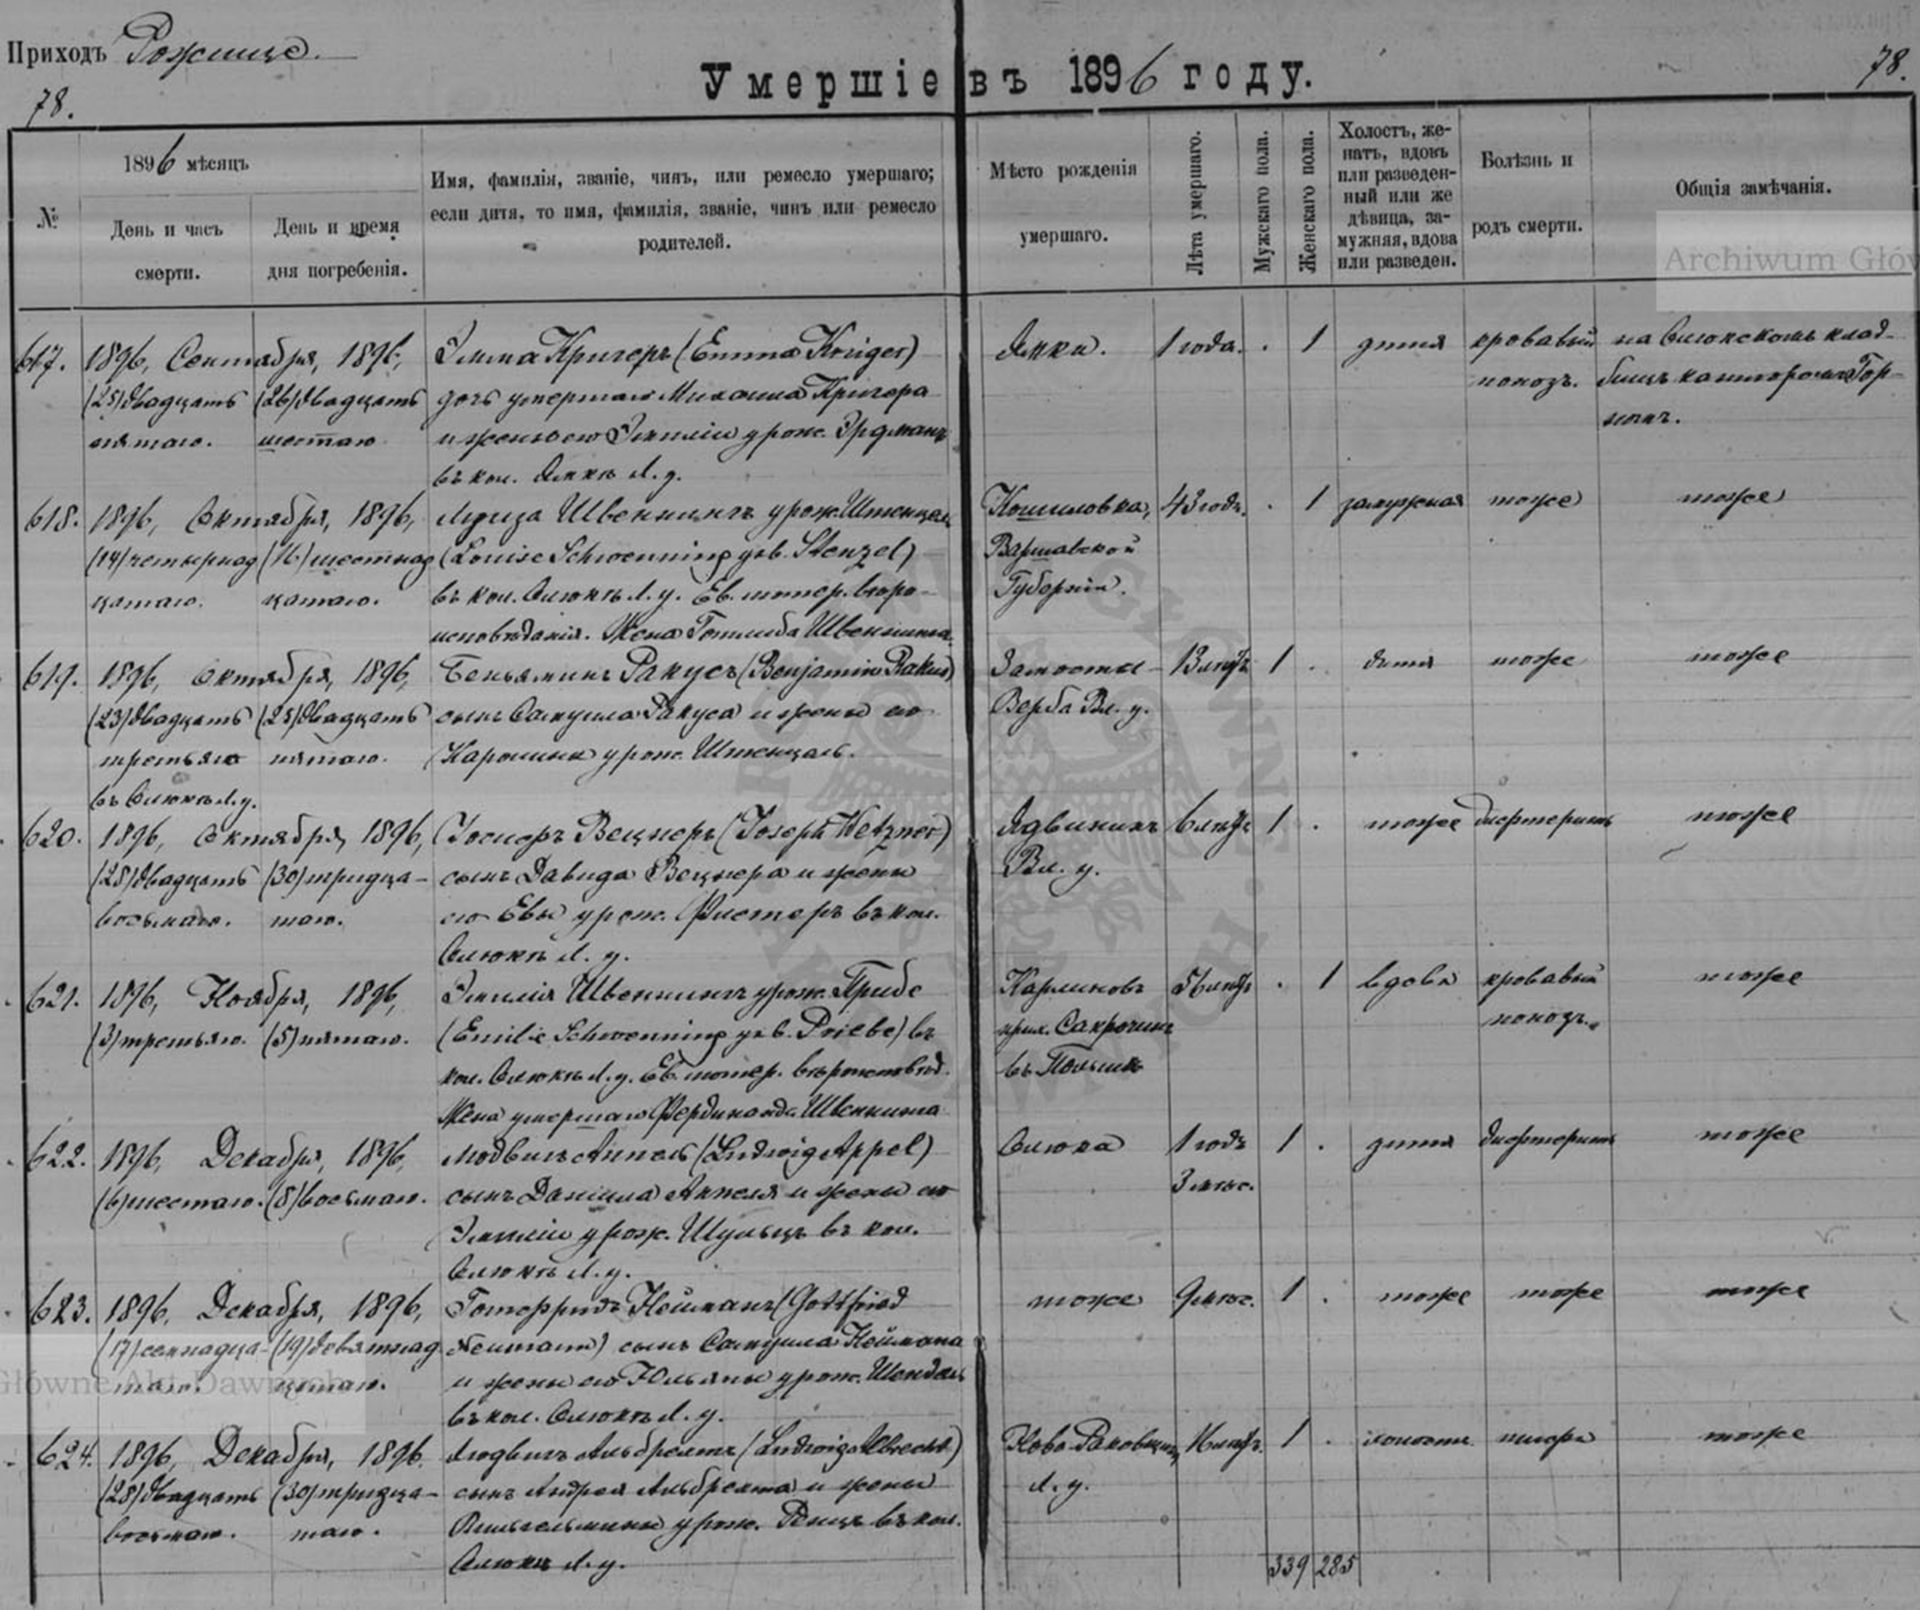 Приходъ Рожище.
78.
Умершіе въ 1896 году.
78.
№
1896 мѣсяцъ
День и часъ смерти.
День и время дня погребенія.
Имя, фамилія, званіе, чинъ, или ремесло умершаго;
если дитя, то имя, фамилія, званіе, чинъ или ремесло
родителей.
Мѣсто рожденія
умершаго.
Лѣта умершаго.
Мужскаго пола.
Женскаго пола.
Холостъ, же-
натъ, вдовъ
или разведен-
ный или же
дѣвица, за-
мужняя, вдова
или разведен.
Болѣзнь и
родъ смерти.
Общія замѣчанія.
Archiwum Głów
617. 1896, Сентября, 1896, Эмма Кригеръ (Emma Krüger) Ямки. 1 года. . 1 дитя кровавый на Олюкскомъ клад-
(25) двадцать (26) двадцать дочь умершаго Михаила Кригера поносъ. бищѣ канторомъ
пятаго. шестаго и жены его Эмиліи урож. Эрдманъ
въ кол. Ямкѣ Л. у.
618. 1896, Октября, 1896, Луиза Швеннингъ урож. Штенцель 43 годъ. . 1 замужняя тоже тоже
(14) четырнад (16) шестнад (Louise Schwenning geb. Stenzel) Варшавской
цатаго. цатаго. въ кол. Олюкѣ Л. у. Ев. лютер. вѣро- Губерніи.
исповѣданія. Жена Готлиба Швеннинга.
619. 1896, Октября, 1896, Беньяминъ Ракусъ (Benjamin Rakus) Замостье 13 лѣтъ 1 . дитя тоже тоже
(23) двадцать (25) двадцать сынъ Самуила Ракуса и жены его Верба Вл. у.
третьяго пятаго. Каролины урож. Штенцель.
въ Олюкѣ Л. у.
620. 1896, Октября, 1896, Іосифъ Вецнеръ (Joseph Wetzner) 6 лѣтъ 1 . тоже дифтеритъ тоже
(28) двадцать (30) тридца- сынъ Давида Вецнера и жены Вл. у.
восьмаго. таго. его Евы урож. Фистеръ въ кол.
Олюкѣ Л. у.
621. 1896, Ноября, 1896, Эмилія Швеннингъ урож. Прибе 56 лѣтъ . 1 вдова кровавый тоже
(3) третьяго. (5) пятаго. (Emilie Schwenning geb. Priebe) въ поносъ.
кол. Олюкѣ Л. у. Ев. лютер. вѣроисповѣд. въ Польшѣ
Жена умершаго Фердинанда Швеннинга
622. 1896, Декабря, 1896, Людвигъ Аппель (Ludwig Appel) Олюка 1 годъ 1 . дитя дифтеритъ тоже
(6) шестаго. (8) восьмаго. сынъ Даніила Аппеля и жены его 3 мѣс.
Эмиліи урож. Шульцъ въ кол.
Олюкѣ Л. у.
623. 1896, Декабря, 1896, Готфридъ Нейманъ (Gottfried тоже 9 мѣс. 1 . тоже тоже тоже
(17) семнадца- (19) девятнад Neumann) сынъ Самуила Неймана
таго. цатаго. и жены его Юльяны урож. Шендель
въ кол. Олюкѣ Л. у.
Główne Akt Dawnych
624. 1896, Декабря, 1896. Людвигъ Альбрехтъ (Ludwig Albrecht) 16 лѣтъ. 1 . холостъ тоже
(28) двадцать (30) тридца- сынъ Андрея Альбрехта и жены Л. у.
восьмаго. таго. Вильгельмины урож. въ кол.
Олюкѣ Л. у.
339 285